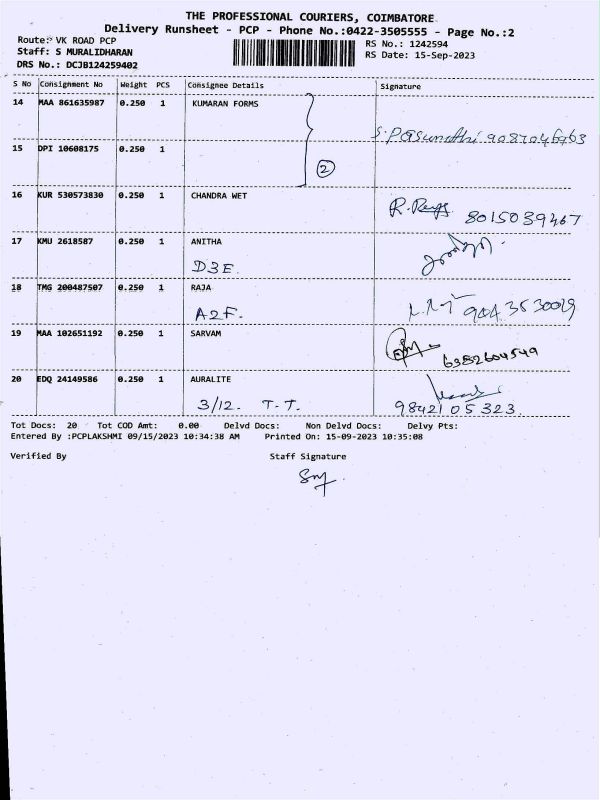 THE PROFESSIONAL COURIERS, COIMBATORE.
Delivery Runsheet - PCP - Phone No.:0422-3505555 - Page No.:2
Route: VK ROAD PCP
RS No.: 1242594
Staff: S MURALIDHARAN
RS Date: 15-Sep-2023
DRS No.: DCJB124259402
S No Consignment No Weight PCS Consignee Details Signature
14 MAA 861635987 0.250 1 KUMARAN FORMS
15 DPI 10608175 0.250 1
2
16 KUR 530573830 0.250 1 CHANDRA WET
8015039467
17 KMU 2618587 0.250 1 ANITHA
D3E
18 TMG 200487507 0.250 1 RAJA
A2F.
19 MAA 102651192 0.250 1 SARVAM
6382604549
20 EDQ 24149586 0.250 1 AURALITE
3/12. T.T. 9842105323
Tot Docs: 20 Tot COD Amt: 0.00 Delvd Docs: Non Delvd Docs: Delvy Pts:
Entered By :PCPLAKSHMI 09/15/2023 10:34:38 AM Printed On: 15-09-2023 10:35:08
Verified By Staff Signature